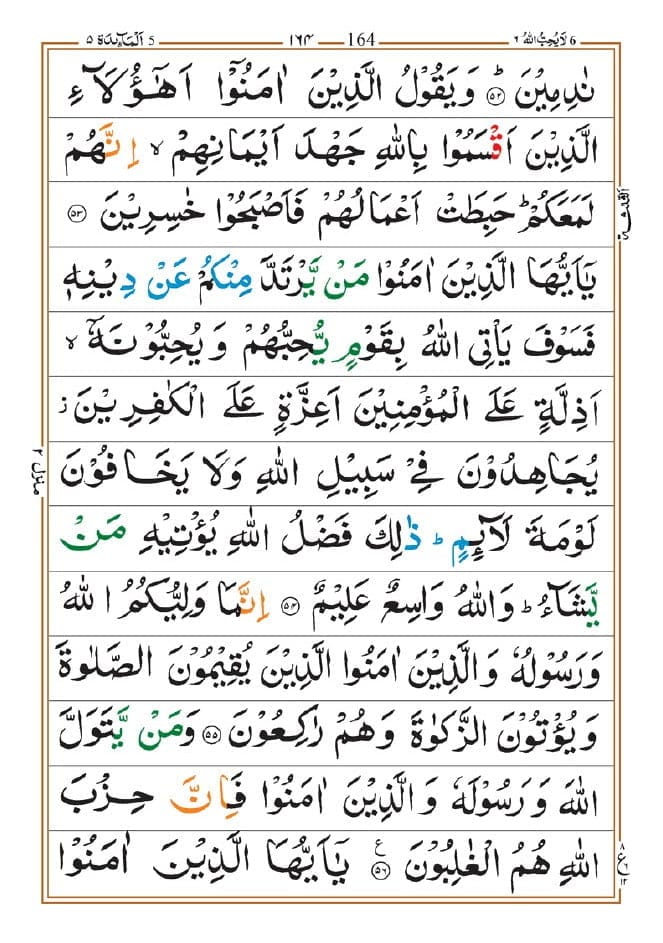 5 اَلْمَآئِدَة ٥
١٦٤ 164
6 لَا يُحِبُّ اللهُ ٦
نٰدِمِيْنَ ؕ ۝٥٢ وَيَقُوْلُ الَّذِيْنَ اٰمَنُوْۤا اَهٰٓؤُلَآءِ
الَّذِيْنَ اَقْسَمُوْا بِاللّٰهِ جَهْدَ اَيْمَانِهِمْ ۙ اِنَّهُمْ
لَمَعَكُمْ ؕ حَبِطَتْ اَعْمَالُهُمْ فَاَصْبَحُوْا خٰسِرِيْنَ ۝٥٣
يٰۤاَيُّهَا الَّذِيْنَ اٰمَنُوْا مَنْ يَّرْتَدَّ مِنْكُمْ عَنْ دِيْنِهٖ
فَسَوْفَ يَاْتِى اللّٰهُ بِقَوْمٍ يُّحِبُّهُمْ وَيُحِبُّوْنَهٗۤ ۙ
اَذِلَّةٍ عَلَى الْمُؤْمِنِيْنَ اَعِزَّةٍ عَلَى الْكٰفِرِيْنَ ز
يُجَاهِدُوْنَ فِىْ سَبِيْلِ اللّٰهِ وَلَا يَخَافُوْنَ
لَوْمَةَ لَآئِمٍ ؕ ذٰلِكَ فَضْلُ اللّٰهِ يُؤْتِيْهِ مَنْ
يَّشَآءُ ؕ وَاللّٰهُ وَاسِعٌ عَلِيْمٌ ۝٥٤ اِنَّمَا وَلِيُّكُمُ اللّٰهُ
وَرَسُوْلُهٗ وَالَّذِيْنَ اٰمَنُوا الَّذِيْنَ يُقِيْمُوْنَ الصَّلٰوةَ
وَيُؤْتُوْنَ الزَّكٰوةَ وَهُمْ رٰكِعُوْنَ ۝٥٥ وَمَنْ يَّتَوَلَّ
اللّٰهَ وَرَسُوْلَهٗ وَالَّذِيْنَ اٰمَنُوْا فَاِنَّ حِزْبَ
اللّٰهِ هُمُ الْغٰلِبُوْنَ ۝٥٦ ع يٰۤاَيُّهَا الَّذِيْنَ اٰمَنُوْا
منزل ٢
٨
ع
١٢